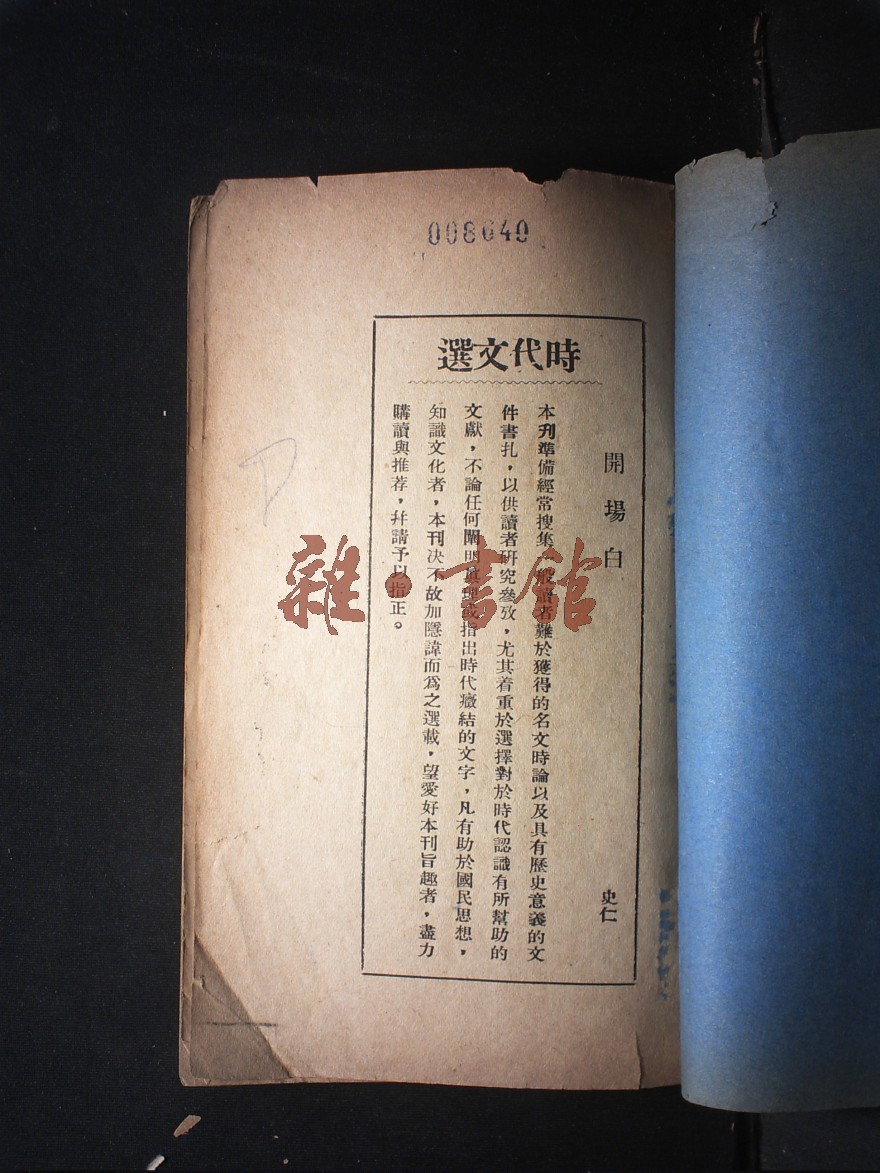 008640
時代文選
開場白
史仁
本刊準備經常搜集一般讀者難於獲得的名文時論以及具有歷史意義的文
件書扎，以供讀者研究參攷，尤其着重於選擇對於時代認識有所幫助的
文獻，不論任何闡明眞理或指出時代癥結的文字，凡有助於國民思想，
知識文化者，本刊决不故加隱諱而爲之選載，望愛好本刊旨趣者，盡力
購讀與推荐，幷請予以指正。
雜·書館